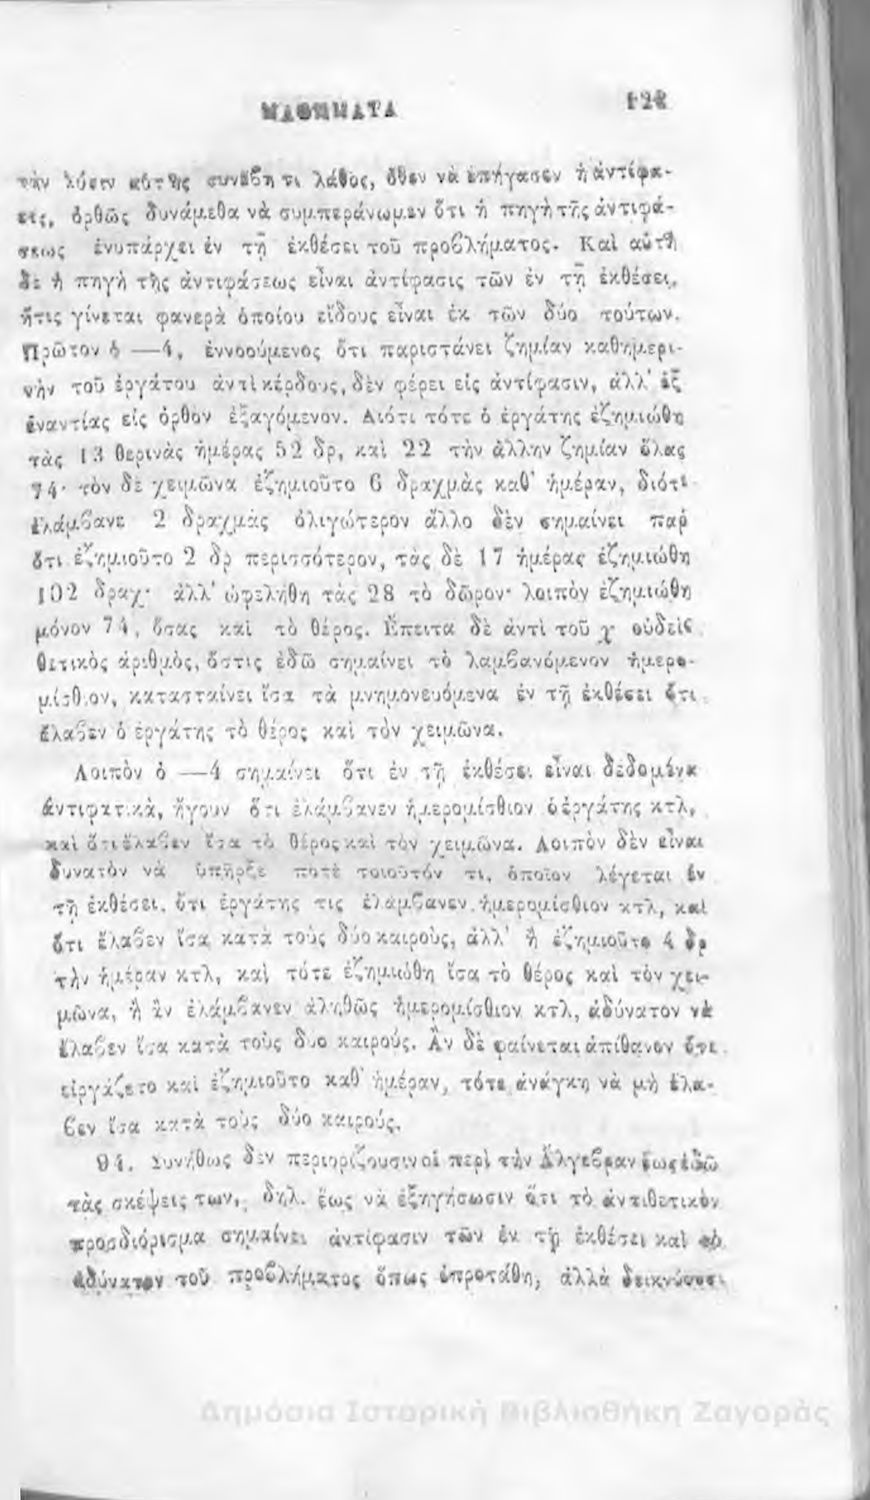 ΜΑΘΗΜΑΤΑ
τὴν λύσιν αὐτῆς συνέβη τι λάθος, ὅθεν νὰ ἐπήγασεν ἡ ἀντίφα-
σις, ὀρθῶς δυνάμεθα νὰ συμπεράνωμεν ὅτι ἡ πηγὴ τῆς ἀντιφά-
σεως ἐνυπάρχει ἐν τῇ ἐκθέσει τοῦ προβλήματος. Καὶ αὐτὴ
δὲ ἡ πηγὴ τῆς ἀντιφάσεως εἶναι ἀντίφασις τῶν ἐν τῇ ἐκθέσει,
ἥτις γίνεται φανερὰ ὁποίου εἴδους εἶναι ἐκ τῶν δύο τούτων.
Πρῶτον ὁ —4, ἐννοούμενος ὅτι παριστάνει ζημίαν καθημερι-
νὴν τοῦ ἐργάτου ἀντὶ κέρδους, δὲν φέρει εἰς ἀντίφασιν, ἀλλ' ἐξ
ἐναντίας εἰς ὀρθὸν ἐξαγόμενον. Διότι τότε ὁ ἐργάτης ἐζημιώθη
τὰς 13 θερινὰς ἡμέρας 52 δρ, καὶ 22 τὴν ἄλλην ζημίαν ὅλας
74· τὸν δὲ χειμῶνα ἐζημιοῦτο 6 δραχμὰς καθ' ἡμέραν, διότι
ἐλάμβανε 2 δραχμὰς ὀλιγώτερον ἄλλο δὲν σημαίνει παρ
ὅτι ἐζημιοῦτο 2 δρ περισσότερον, τὰς δὲ 17 ἡμέρας ἐζημιώθη
102 δραχ· ἀλλ' ὠφελήθη τὰς 28 τὸ δῶρον· λοιπὸν ἐζημιώθη
μόνον 74, ὅσας καὶ τὸ θέρος. Ἔπειτα δὲ ἀντὶ τοῦ χ οὐδεὶς
θετικὸς ἀριθμὸς, ὅστις ἐδῶ σημαίνει τὸ λαμβανόμενον ἡμερο-
μίσθιον, κατασταίνει ἴσα τὰ μνημονευόμενα ἐν τῇ ἐκθέσει ὅτι
ἔλαβεν ὁ ἐργάτης τὸ θέρος καὶ τὸν χειμῶνα.
Λοιπὸν ὁ —4 σημαίνει ὅτι ἐν τῇ ἐκθέσει εἶναι δεδομένα
ἀντιφατικὰ, ἤγουν ὅτι ἐλάμβανεν ἡμερομίσθιον ὁ ἐργάτης κτλ,
καὶ ὅτι ἔλαβεν ἴσα τὸ θέρος καὶ τὸν χειμῶνα. Λοιπὸν δὲν εἶναι
δυνατὸν νὰ ὑπῆρξε ποτὲ τοιοῦτόν τι, ὁποῖον λέγεται ἐν
τῇ ἐκθέσει, ὅτι ἐργάτης τις ἐλάμβανεν ἡμερομίσθιον κτλ, καὶ
ὅτι ἔλαβεν ἴσα κατὰ τοὺς δύο καιροὺς, ἀλλ' ἢ ἐζημιοῦτο 4 δρ
τὴν ἡμέραν κτλ, καὶ τότε ἐζημιώθη ἴσα τὸ θέρος καὶ τὸν χει-
μῶνα, ἢ ἂν ἐλάμβανεν ἀληθῶς ἡμερομίσθιον κτλ, ἀδύνατον νὰ
ἔλαβεν ἴσα κατὰ τοὺς δύο καιρούς. Ἂν δὲ φαίνεται ἀπίθανον ὅτι
εἰργάζετο καὶ ἐζημιοῦτο καθ' ἡμέραν, τότε ἀνάγκη νὰ μὴ ἔλα-
βεν ἴσα κατὰ τοὺς δύο καιρούς.
94. Συνήθως δὲν περιορίζουσιν οἱ περὶ τὴν Ἄλγεβραν ἕως ἐδῶ
τὰς σκέψεις των, δηλ. ἕως νὰ ἐξηγήσωσιν ὅτι τὸ ἀντιθετικὸν
προσδιόρισμα σημαίνει ἀντίφασιν τῶν ἐν τῇ ἐκθέσει καὶ τὸ
ἀδύνατον τοῦ προβλήματος ὅπως ἐπροτάθη, ἀλλὰ δεικνύουσι
Δημόσια Ιστορική Βιβλιοθήκη Ζαγοράς